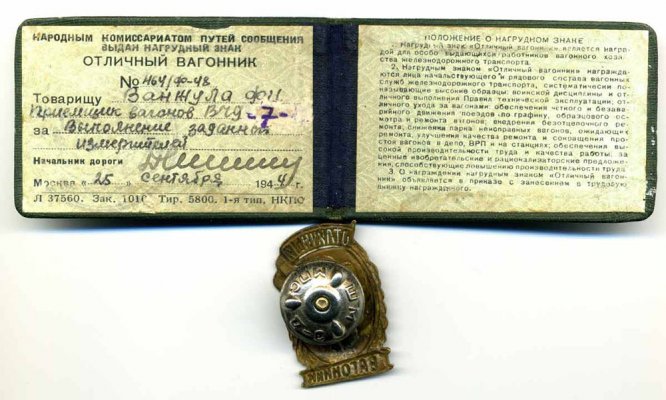 НАРОДНЫМ КОМИССАРИАТОМ ПУТЕЙ СООБЩЕНИЯ
ВЫДАН НАГРУДНЫЙ ЗНАК
ОТЛИЧНЫЙ ВАГОННИК
№ 464/Ф-48
Товарищу Ванжула Ф.И.
Приемщик вагонов ВЧД-7-
за Выполнение заданной
Начальник дороги
Москва „25" сентября 1944
Л 37560. Зак. 1010 Тир. 5800. 1-я тип. НКПС
ПОЛОЖЕНИЕ О НАГРУДНОМ ЗНАКЕ
1. Нагрудный знак «Отличный вагонник» является награ-
дой для особо выдающихся работников вагонного хозяй-
ства железнодорожного транспорта.
2. Нагрудным знаком «Отличный вагонник» награждают-
ся лица начальствующего и рядового состава вагонных
служб железнодорожного транспорта, систематически по-
казывающие высокие образцы воинской дисциплины и от-
личного выполнения Правил технической эксплуатации; от-
личного ухода за вагонами обеспечения чёткого и безава-
рийного движения поездов по графику, образцового ос-
мотра и ремонта вагонов; внедрения безотцепочного ре-
монта, снижения парка неисправных вагонов, ожидающих
ремонта, улучшения качества ремонта и сокращения прос-
тоя вагонов в депо, ВРП и на станциях; обеспечения выс-
сокой производительности труда и качества работы; за
ценные изобретательские и рационализаторские предложе-
ния, способствующие повышению производительности труда
3. О награждении нагрудным знаком «Отличный вагон-
ник» объявляется в приказе с занесением в трудовую
книжку награжденного.